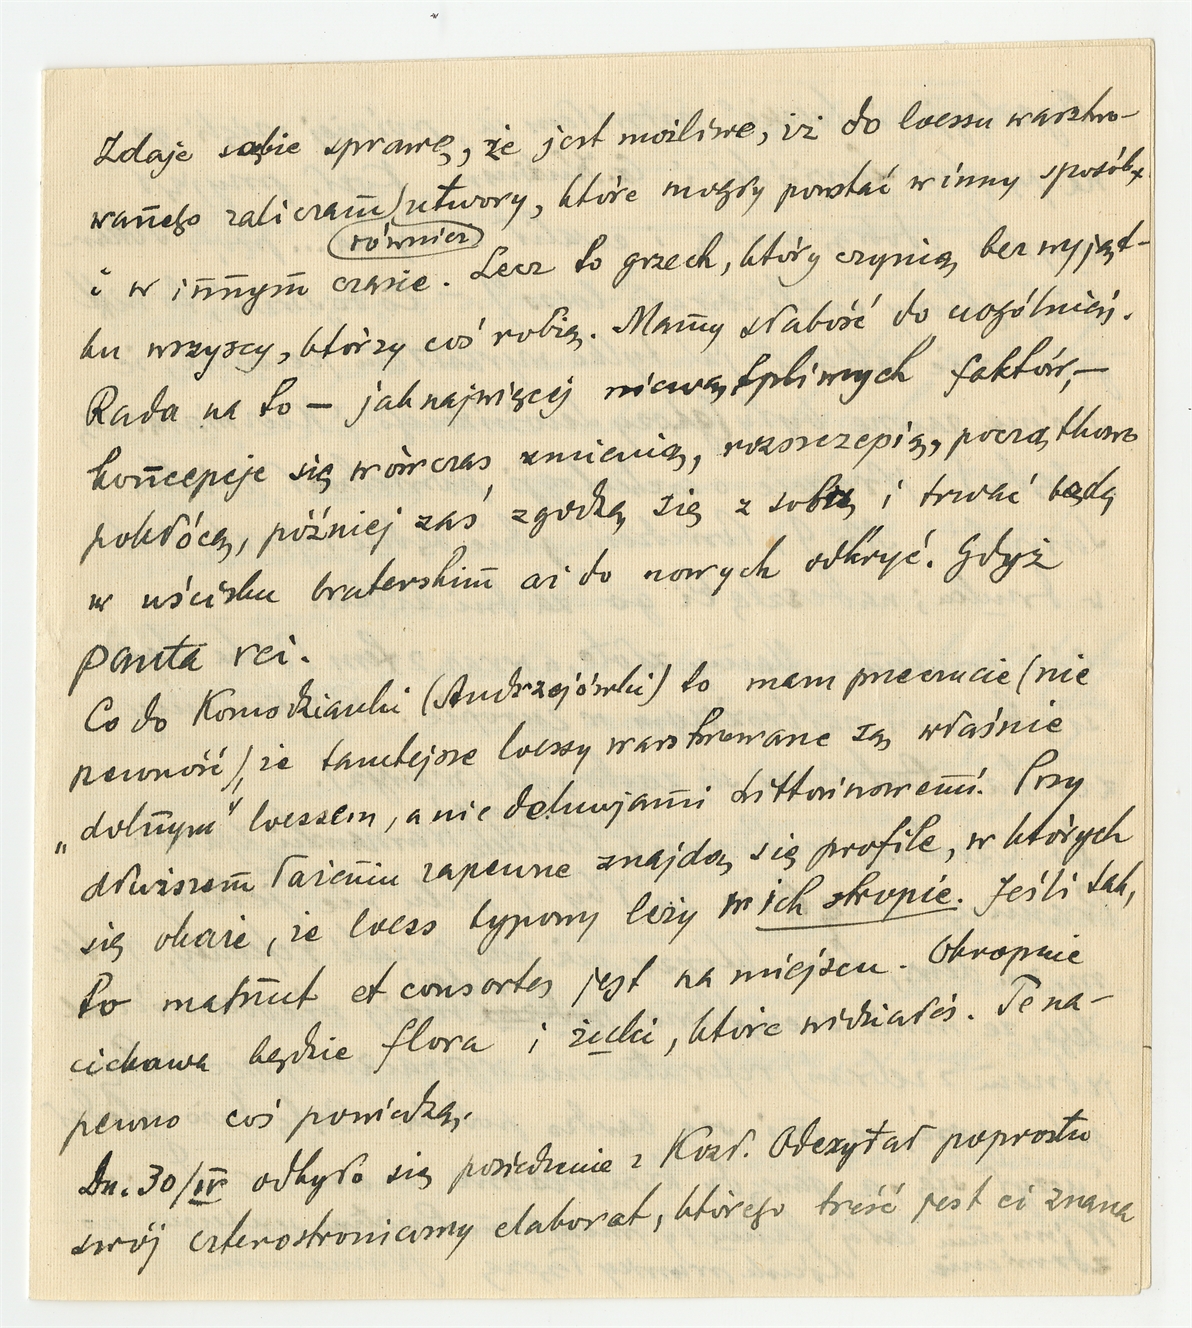 Zdaje sobie sprawę, że jest możliwe, iż do loessu warstwo-
wanego zaliczam utwory, które mogły powstać w inny sposób
również
i w innym czasie. Lecz to grzech, który czynią bez wyjąt-
ku wszyscy, którzy coś robią. Mamy słabość do uogólnień.
Rada na to – jaknajwięcej niewątpliwych faktów, –
koncepcje się wówczas zmienią, rozszczepią, początkowo
pokłócą, później zaś zgodzą się z sobą i trwać będą
w uścisku braterskim aż do nowych odkryć. Gdyż
panta rei.
Co do Komodzianki (Andrzejówki) to mam przeczucie (nie
pewność), że tamtejsze loessy warstwowane są właśnie
„dolnym" loessem, a nie deluwjami Littorinowemi. Przy
dłuższem łażeniu zapewne znajdą się profile, w których
się okaże, że loess typowy leży w ich stropie. Jeśli tak,
to mamut et consortes jest na miejscu. Okropnie
ciekawa będzie flora i żuki, które widziałeś. Te na-
pewno coś powiedzą.
Dn. 30/IV odbyło się posiedzenie z Kozł. Odczytał poprostu
swój czterostronicowy elaborat, którego treść jest ci znana